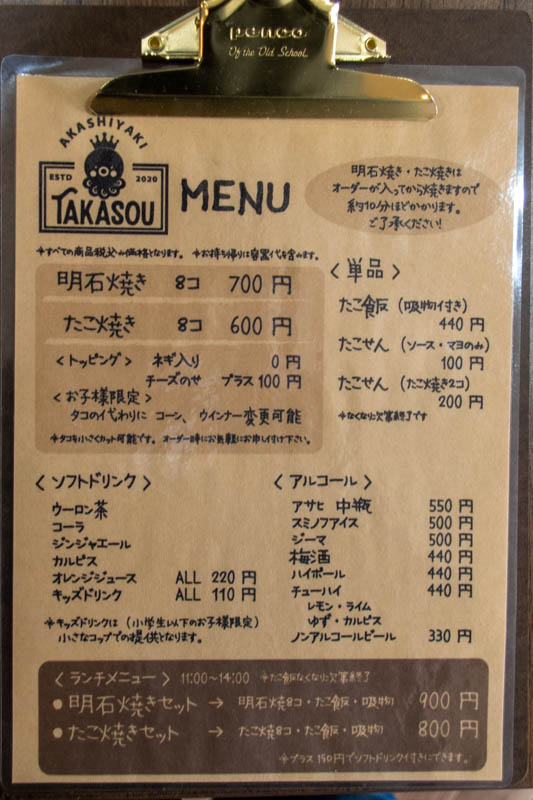 penco
Of the Old School
AKASHIYAKI
ESTD 2020
TAKASOU
MENU
明石焼き・たこ焼きは
オーダーが入ってから焼きますので
約10分ほどかかります。
ご了承ください!
*すべての商品税込み価格となります。 *お持ち帰りは容器代を含みます。
明石焼き 8コ 700円
たこ焼き 8コ 600円
〈トッピング〉 ネギ入り 0円
チーズのせ プラス100円
〈お子様限定〉
タコの代わりに コーン、ウインナー変更可能
*タコも小さくカット可能です。オーダー時にお気軽にお申し付け下さい。
〈単品〉
たこ飯(吸物付き)
440円
たこせん(ソース・マヨのみ)
100円
たこせん(たこ焼き2コ)
200円
*なくなり次第終了です
〈ソフトドリンク〉
ウーロン茶
コーラ
ジンジャエール
カルピス
オレンジジュース ALL 220円
キッズドリンク ALL 110円
*キッズドリンクは(小学生以下のお子様限定)
小さなコップでの提供となります。
〈アルコール〉
アサヒ 中瓶 550円
スミノフアイス 500円
ジーマ 500円
梅酒 440円
ハイボール 440円
チューハイ 440円
レモン・ライム
ゆず・カルピス
ノンアルコールビール 330円
〈ランチメニュー〉 11:00~14:00 *たこ飯なくなり次第終了
●明石焼きセット → 明石焼8コ・たこ飯・吸物 900円
●たこ焼きセット → たこ焼8コ・たこ飯・吸物 800円
*プラス150円でソフトドリンク付きにできます。